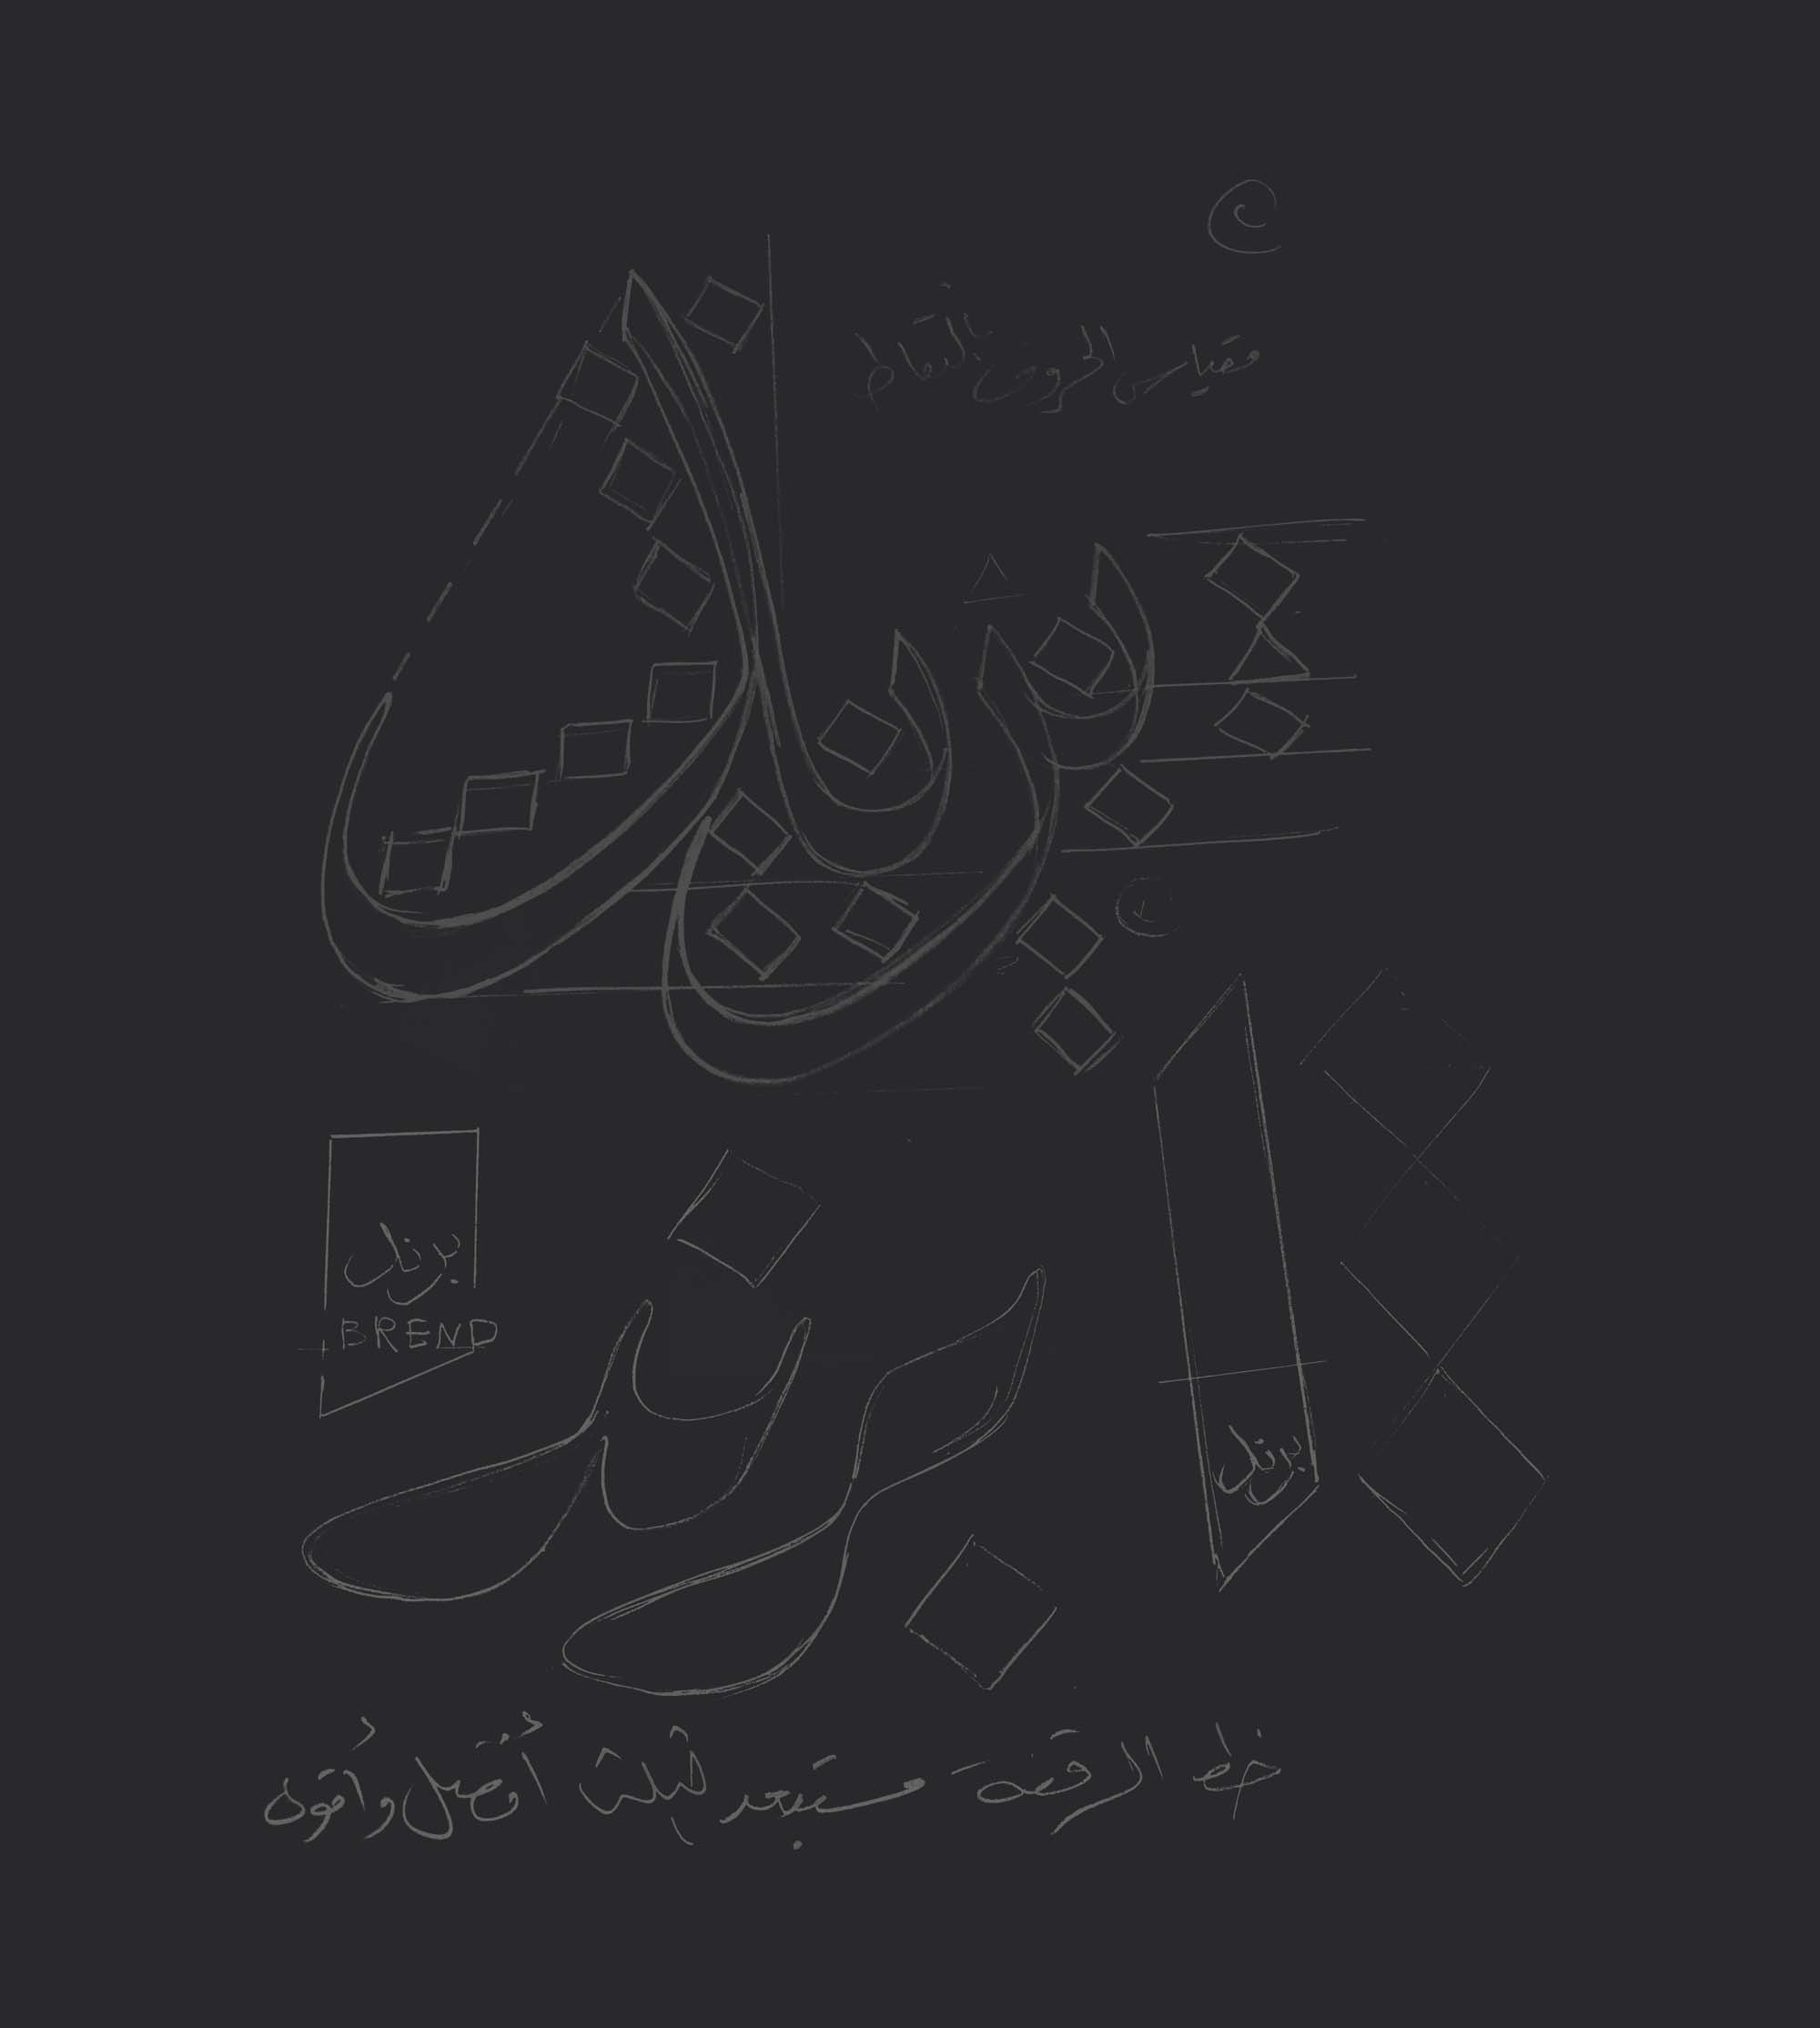 مقياس الحروف بالقلم
برند
برند
BREND
برند
خط الرقعة مستبعد ليست أفضل وأقوى